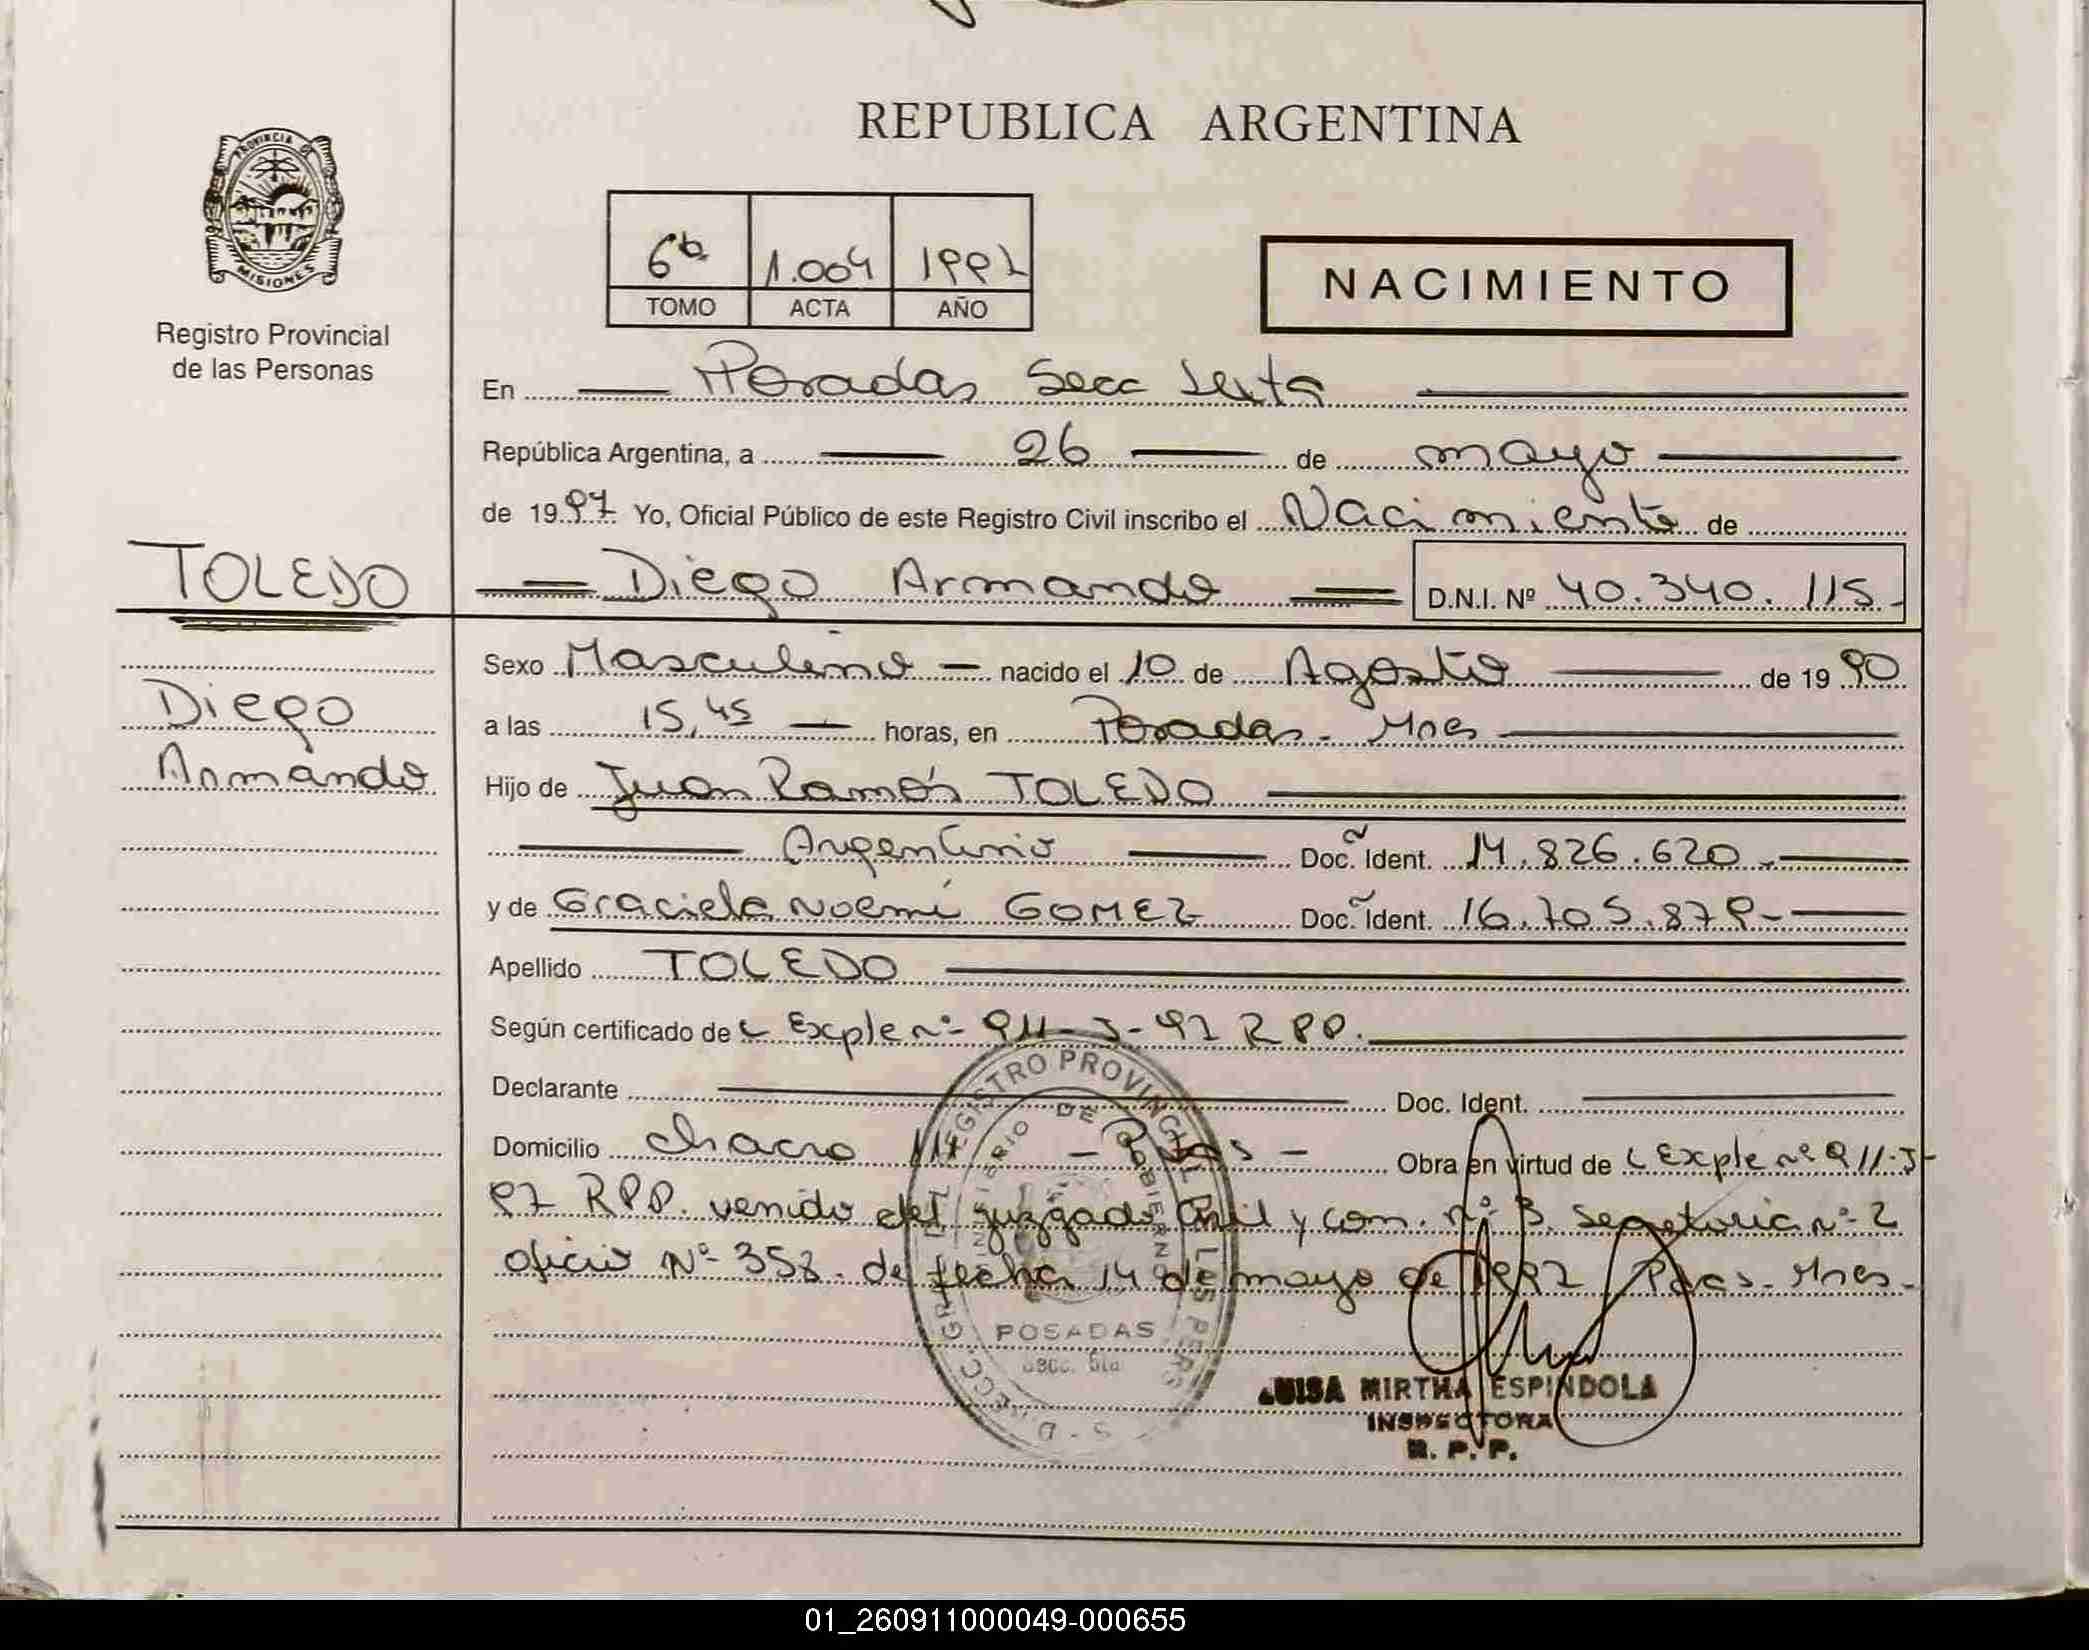 REPUBLICA ARGENTINA
PROVINCIA DE MISIONES
Registro Provincial
de las Personas
6b 1.004 1997
TOMO ACTA AÑO
NACIMIENTO
En Posadas Secc Sexta
República Argentina, a 26 de mayo
de 1997 Yo, Oficial Público de este Registro Civil inscribo el Nacimiento de
TOLEDO
Diego Armando D.N.I. Nº 40.340.115-
Sexo Masculino nacido el 10 de Agosto de 1990
Diego
Armando
a las 15,45 horas, en Posadas - Mnes
Hijo de Juan Ramón TOLEDO
Argentino Doc. Ident. 14.826.620
y de Graciela Noemí GOMEZ Doc. Ident. 16.705.879-
Apellido TOLEDO
Según certificado de Expte nº 911-J-97 RPP.
Declarante Doc. Ident.
Domicilio chacra - Pdas - Obra en virtud de Expte nº 911-J-
97 RPP. venido del juzgado Civil y com. nº 3. Secretaria nº 2
oficio Nº 358. de fecha 14 de mayo de 1997 Pdas - Mnes -
REGISTRO PROVINCIAL DE LAS PERS
MINISTERIO DE GOBIERNO
POSADAS
Secc. 6ta
LUISA MIRTHA ESPINDOLA
INSPECTORA
R. P. P.
01_260911000049-000655